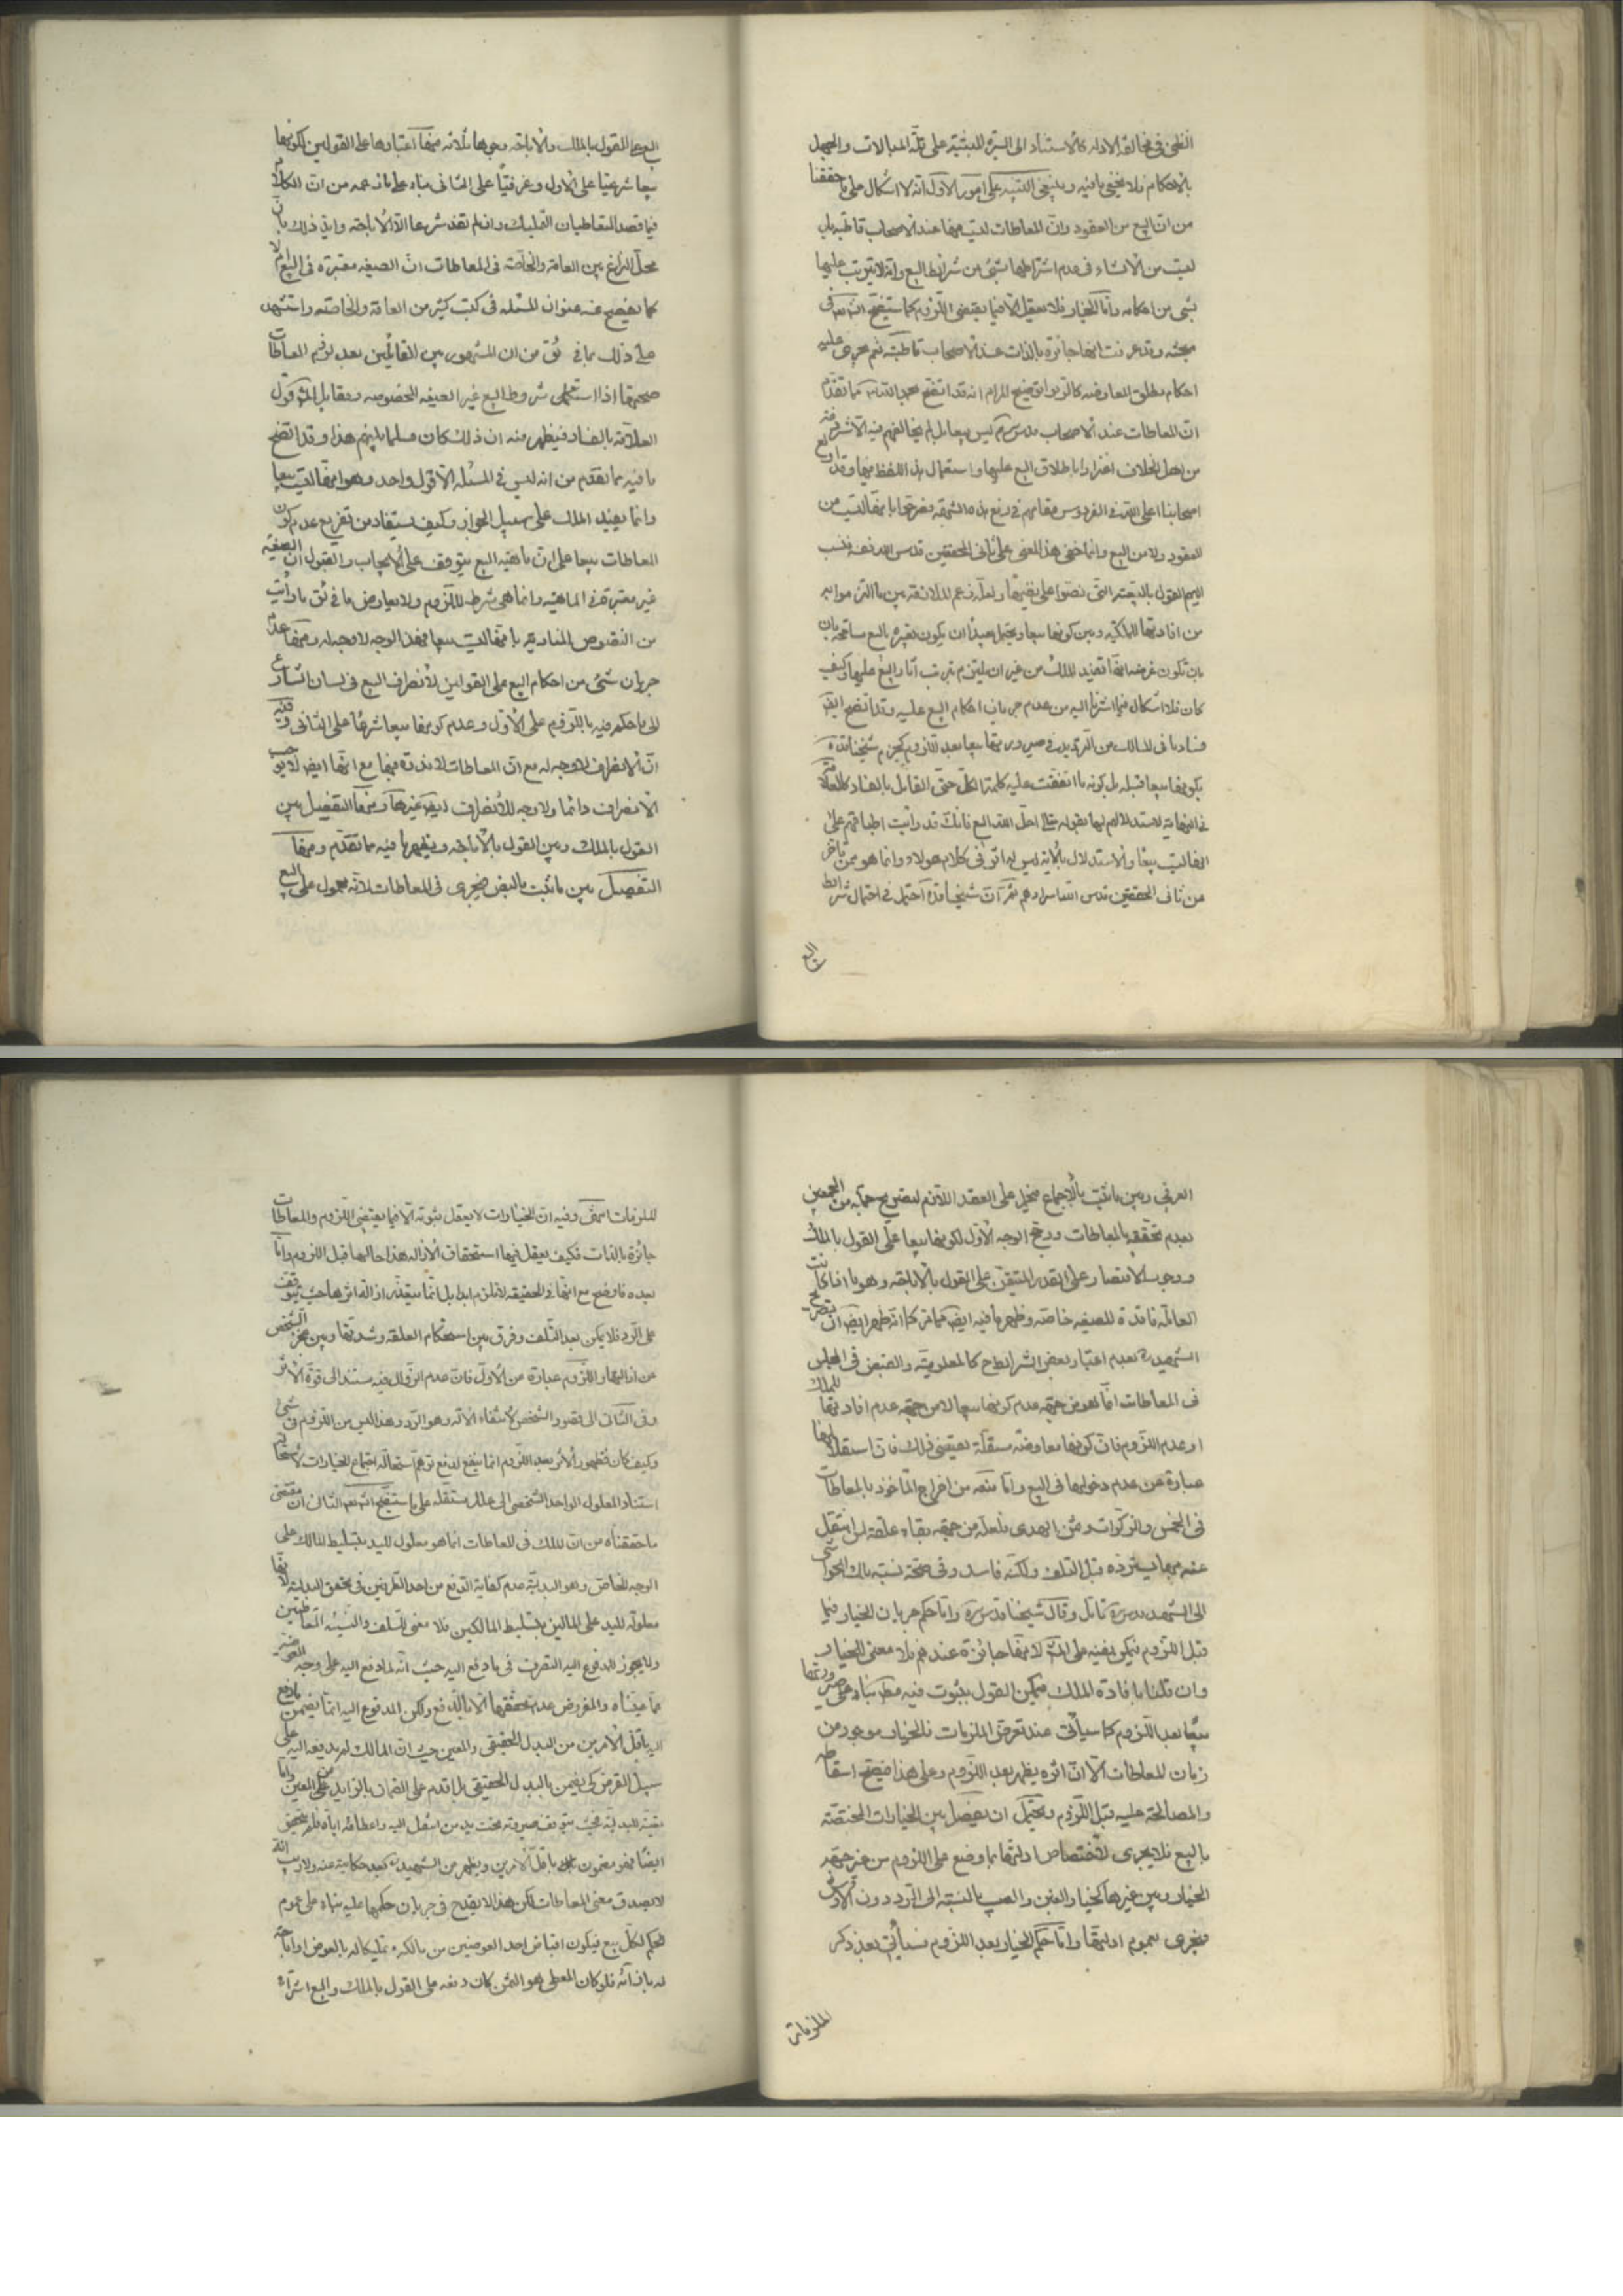 الظن في مخالفة الادلة كالاستناد الى السيرة المبتنية على قلة المبالات والجهل
بالاحكام فلا يخفى ما فيه وينبغي التنبيه على امور الاول انه لا اشكال على ما حققنا
من ان البيع من العقود وان المعاطات ليست منها عند الاصحاب قاطبة بل
ليست من الانشاء في عدم اشتراطها بشئ من شرائط البيع وانه لا يترتب عليها
شئ من احكامه واما الخيار فلا يعقل الا فيما يقتضي اللزوم كما ستتضح انشاء الله في
محله وقد عرفت انها جائزة بالذات عند الاصحاب قاطبة نعم يجري عليه
احكام مطلق المعاوضة كالربوا توضيح المرام انه قد اتضح بحمد الله مما تقدم
ان المعاطات عند الاصحاب قدس سرهم ليس بيعا بل لم يخالفهم فيه الا شرذمة
من اهل الخلاف اغترارا باطلاق البيع عليها واستعمال هذا اللفظ فيها وقد
اصحابنا اعلى الله في الفردوس مقامهم في دفع هذه الشبهة فصرحوا بانها ليست من
العقود ولا من البيع وانما خفي هذا المعنى على ثاني المحققين قدس الله نفسه فنسب
اليهم القول بالبيعية التي نصوا على نفيها ولعله زعم الملازمة بين ما التزموا به
من افادتها الملكية وبين كونها بيعا ويحتمل بعيدا ان يكون تعبيره بالبيع مسامحة بان
بان تكون غرضه انها تفيد الملك من غير ان يلتزم بترتب آثار البيع عليها وكيف
كان فلا اشكال فيما اشرنا اليه من عدم جريان احكام البيع عليه وقد اتضح ايضا
فساد ما في المسالك من الترديد في صيرورتها بيعا بعد اللزوم كجزم شيخنا قده
بكونها بيعا قبله بل كونه ما اتفقت عليه كلمة الكل حتى القائل بالفساد كالعلامة
في النهاية لاستدلالهم بها بقوله تعالى احل الله البيع فانك قد رأيت اطباقهم على
انها ليست بيعا والاستدلال بالاية ليس له اثر في كلام هؤلاء وانما هو ممن تأخر
من ثاني المحققين قدس الله اسرارهم ثم ان شيخنا قده احتمل في احتمال شرائط
البيع
البيع على القول بالملك والاباحة وجوها ثلاثة منها اعتبارها على القولين لكونها
بيعا شرعيا على الاول وعرفيا على الثاني بناء على ما زعمه من ان الكلام
فيما قصد المتعاطيان التمليك وان لم تفد شرعا الا الاباحة وايد ذلك بان
محل النزاع بين العامة والخاصة في المعاطات ان الصيغة معتبرة في البيع ام لا
كما يفصح عنه عنوان المسئلة في كتب كثير من العامة والخاصة واستشهد
على ذلك بما في ئق من ان المشهور بين القائلين بعدم لزوم المعاطات
صحتها اذا استكمل شروط البيع غير الصيغة المخصوصة ومقابل المشهور قول
العلامة بالفساد فيظهر منه ان ذلك كان مسلما بينهم هذا وقد اتضح
ما فيه مما تقدم من انه ليس في المسئلة الا قول واحد وهو انها ليست بيعا
وانما يفيد الملك على سبيل الجواز وكيف يستفاد من تفريع عدم كون
المعاطات بيعا على ان ماهية البيع يتوقف على الايجاب والقبول ان الصيغة
غير معتبرة في الماهية وانما هي شرط للزوم ولا يعارض ما في ئق ما رأيت
من النصوص المنادية بانها ليست بيعا فهذا الوجه لا وجه له ومنها عدم
جريان شئ من احكام البيع على القولين لانصراف البيع في لسان الشارع
الى ما حكم فيه باللزوم على الاول وعدم كونها بيعا شرعا على الثاني وفيه
ان الانصراف لا وجه له مع ان المعاطات لا ندرة فيها مع انها ايضا لا يوجب
الانصراف دائما ولا وجه للانصراف غيرها ومنها التفصيل بين
القول بالملك وبين القول بالاباحة ويظهر ما فيه مما تقدم ومنها
التفصيل بين ما ثبت بالنص فيجري في المعاطات لانه محمول على البيع
العرفي وبين ما ثبت بالاجماع فيحمل على العقد اللازم لتصريح جماعة من المجمعين
بعدم تحققه بالمعاطات ورجح الوجه الاول لكونها بيعا على القول بالملك
ووجوب الاقتصار على القدر المتيقن على القول بالاباحة وهو ما اذا كانت
المعاملة فاقدة للصيغة خاصة وظهر ما فيه ايضا مما مر كما انه ظهر ايضا ان تصريح
الشهيد ره بعدم اعتبار بعض الشرائط كالمعلومية والقبض في المجلس
في المعاطات انما هو من جهة عدم كونها بيعا لا من جهة عدم افادتها للملك
او عدم اللزوم فان كونها معاوضة مستقلة يقتضي ذلك فان استقلالها
عبارة عن عدم دخولها في البيع واما منعه من اخراج المأخوذ بالمعاطات
في الخمس والزكوات وثمن الهدي فلعله من جهة بقاء علقة لمن انتقل
عنه بها يسترده قبل التلف ولكنه فاسد وفي صحة نسبة ذلك الحواشي
الى الشهيد قدس سره تامل وقال شيخنا قدس سره واما حكم جريان الخيار فيها
قبل اللزوم فيمكن نفيه على المشهور لانها جائزة عندهم فلا معنى للخيار
وان قلنا بافادة الملك فيمكن القول بثبوت فيه مطلقا بناء على صيرورتها
بيعا بعد اللزوم كما سيأتي عند تعرض الملزمات فالخيار موجود من
زمان المعاطات الا ان اثره يظهر بعد اللزوم وعلى هذا فيصح اسقاطه
والمصالحة عليه قبل اللزوم ويحتمل ان يفصل بين الخيارات المختصة
بالبيع فلا يجري لاختصاص ادلتها بما وضع على اللزوم من غير جهة
الخيار وبين غيرها كخيار الغبن والعيب بالنسبة الى الرد دون الارش
فيجري لعموم ادلتها واما حكم الخيار بعد اللزوم فسيأتي بعد ذكر
الملزمات
للملزمات انتهى وفيه ان الخيارات لا يعقل ثبوته الا فيما يقتضي اللزوم والمعاطات
جائزة بالذات فكيف يعقل فيها استحقاق الازالة هذا حالها قبل اللزوم واما
بعده فاوضح مع انها في الحقيقة لا تلزم ابدا بل انما يتعذر ازالة اثرها حيث يتوقف
على الرد فلا يمكن بعد التلف وفرق بين استحكام العلقة وشدتها وبين عجز الشخص
عن ازالتها واللزوم عبارة عن الاول فان عدم الزوال فيه مستند الى قوة الاثر
وفي الثاني الى قصور الشخص لانتفاء الآلة وهو الرد وهذا ليس من اللزوم في شئ
وكيف كان فظهور الاثر بعد اللزوم انما ينفع لدفع توهم استحالة اجتماع الخيارات لاستحالة
استناد المعلول الواحد الشخصي الى علل مستقلة على ما ستتضح انشاء الله الثالث ان مقتضى
ما حققناه من ان الملك في المعاطات انما هو معلول لليد بتسليط المالك على
الوجه الخاص وهو البدلية عدم كفاية الدفع من احد الطرفين في تحقق البدلية لانها
معلولة لليد على المالين بتسليط المالكين فلا معنى للسلف والنسيئة المتعاطيين
ولا يجوز للمدفوع اليه التصرف في ما دفع اليه حيث انه لما دفع اليه على وجه المعوضية
كما بيناه والمفروض عدم تحققها الا بالدفع ولكن المدفوع اليه انما يضمن ما دفع
اليه باقل الامرين من البدل الحقيقي والمعين حيث ان المالك لم يدفعه اليه على
سبيل القرض كي يضمن بالبدل الحقيقي بل اقدم على الضمان بالزايد من على العين واما
ايضا فهو مضمون باقل الامرين ويظهر من الشهيد ره بعد حكايته عنه ولا ريب انه
لا يصدق معنى المعاطات لكن هذا لا يقدح في جريان حكمها عليه بناء على عموم
الحكم لكل بيع فيكون اقباض احد العوضين من مالكه تمليكا له بالعوض او اباحة
له بازائه فلو كان المعطى هو الثمن كان دفعه على القول بالملك والبيع اشتراء